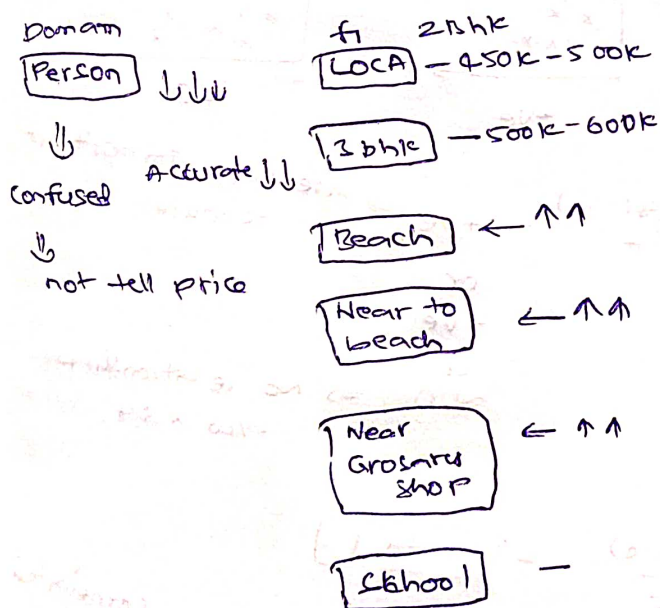 Domain
Person ↓↓↓
⇓
Accurate ↓↓
Confused
⇓
not tell price
f1 2Bhk
LOCA - 450K - 500K
3 bhk - 500K - 600K
Beach ← ↑↑
Near to
beach ← ↑↑
Near ← ↑↑
Grosarys
Shop
Skhool -